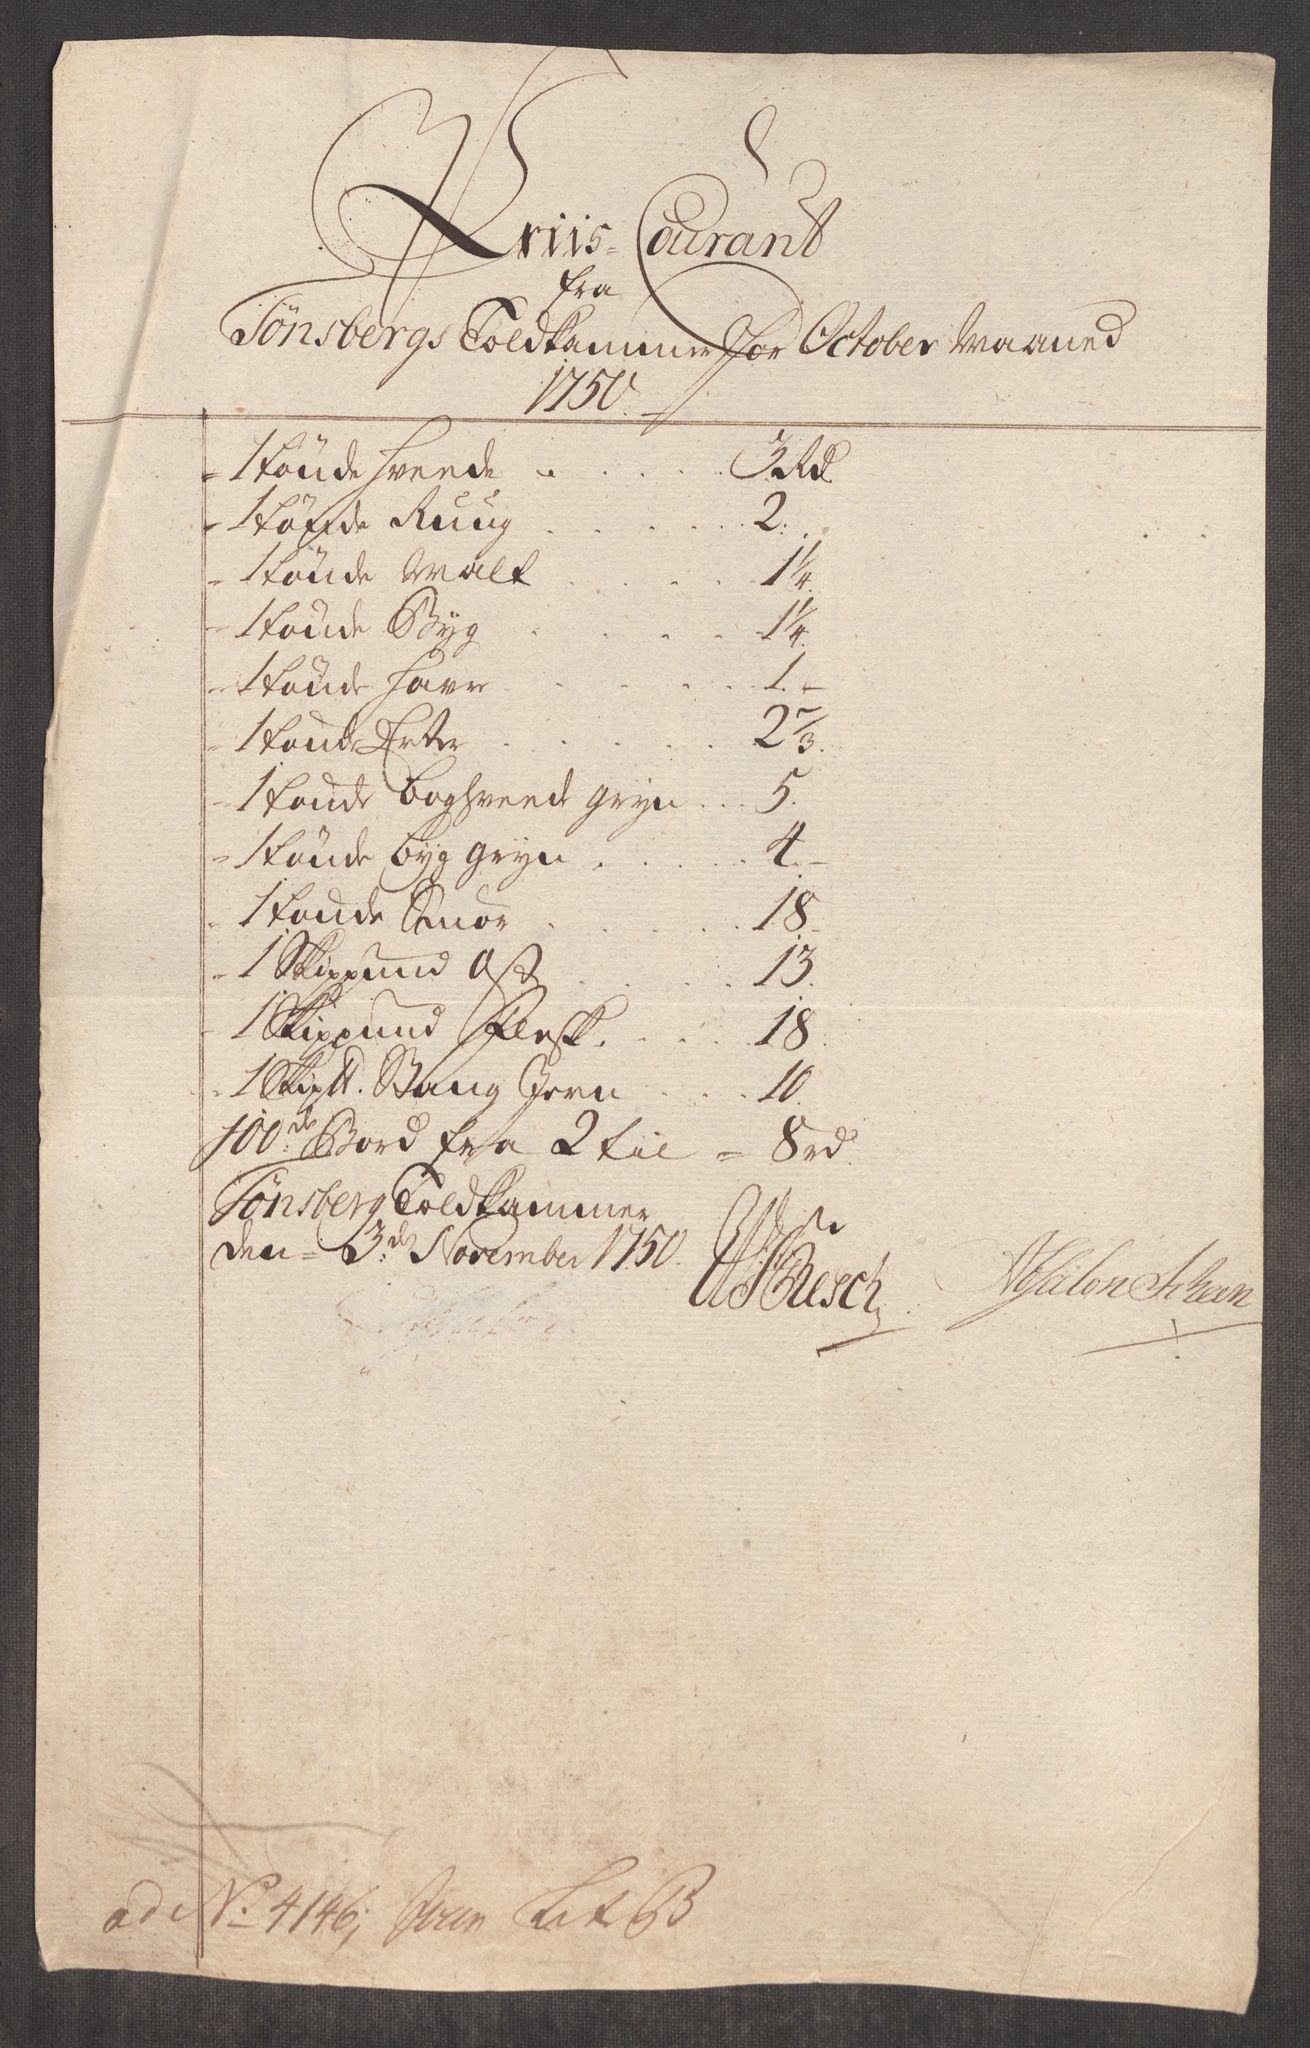 Priis- Courant
fra
Tönsbergs Toldkammer for October Maaned
1750.
1 tönde Hveede . . . . 3 Rd.
1 tönde Ruug . . . . . 2.
1 tönde Malt . . . . 1 1/4.
1 tönde Byg . . . . 1 1/4.
1 tönde Havre . . . . 1. -
1 tönde Erter . . . . . 2 2/3.
1 tönde boghveede gryn . . . 5.
1 tönde byg gryn . . . . 4. -
1 tönde Smör . . . . . 18
1 Skippund Ost . . . . 13.
1 Skippund Flesk . . . . 18.
1 Skip℔. Stang Jern . . . 10.
100de Bord fra 2 til = 8 rd.
Tönsberg Toldkammer
den = 3de November 1750.
Resch
Absalon
ad No. 4146, Lit B